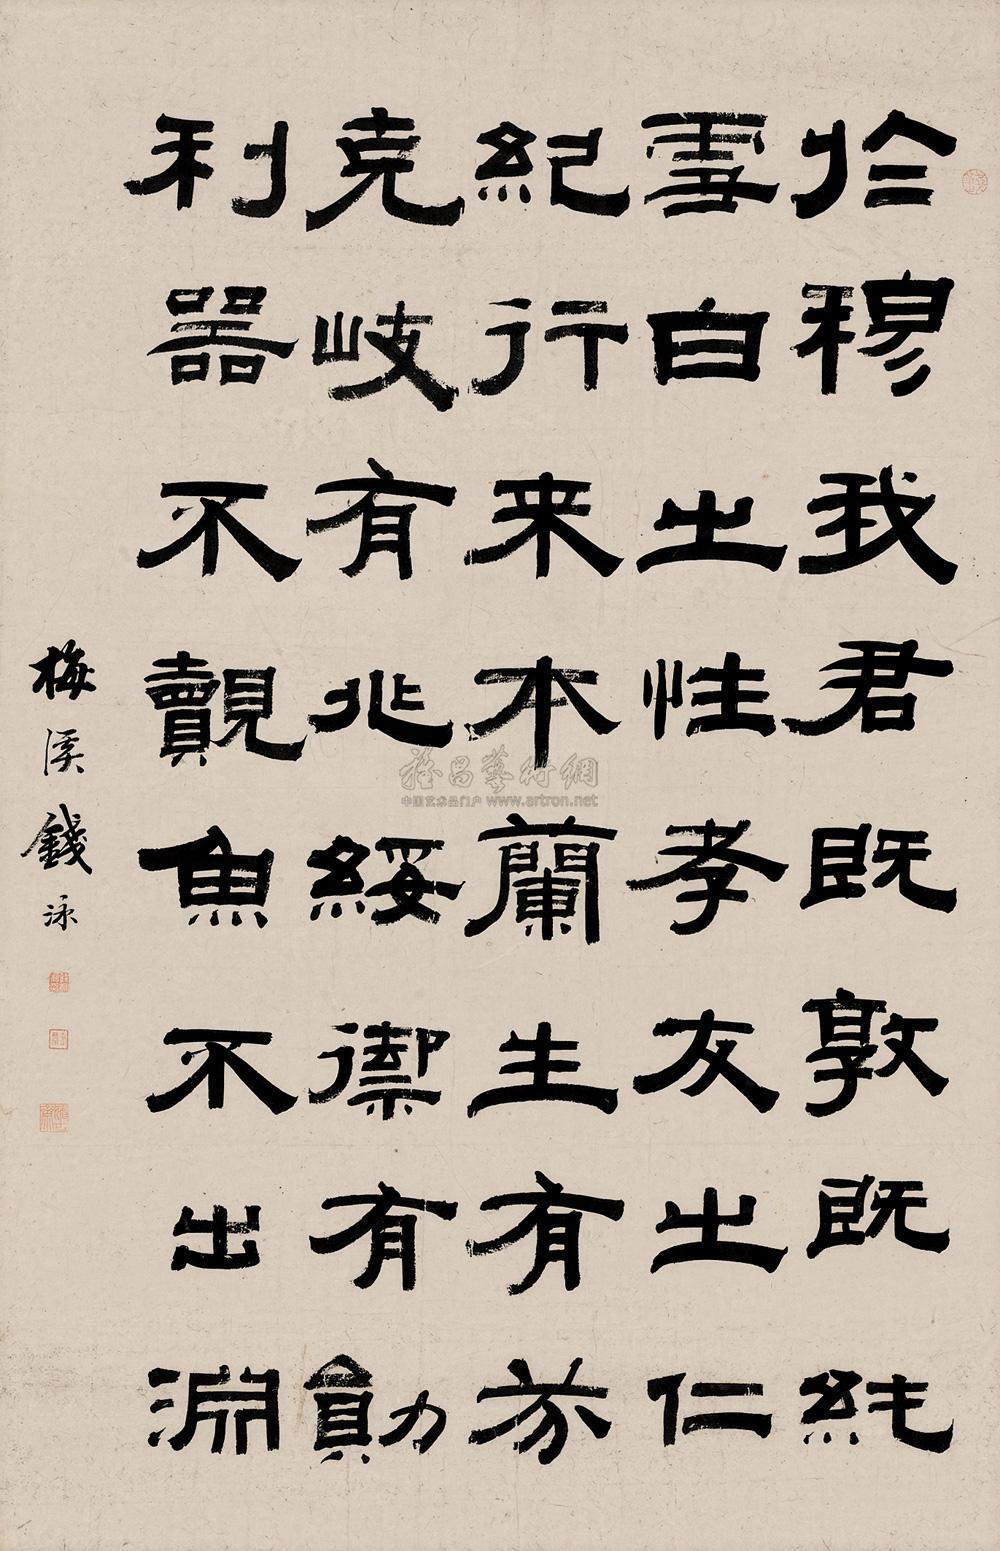 於穆我君既敦既純
雪白之性孝友之仁
紀行来本蘭生有芬
克岐有兆綏禦有勛
利器不觌魚不出淵
梅溪錢泳
雅昌藝術網
中国艺术品门户 www.artron.net